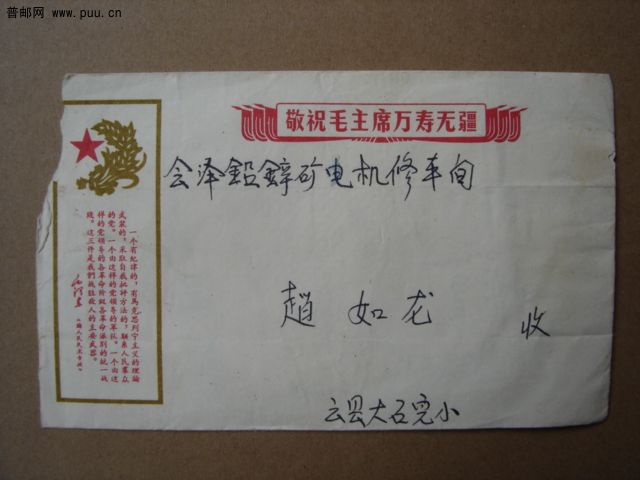 普邮网 www.puu.cn
敬祝毛主席万寿无疆
会泽鉛鋅矿电机修车间
趙如龙 收
云县大石完小
一个有纪律的，有马克思列宁主义的理論
武装的，采取自我批評方法的，联系人民羣众
的党。一个由这样的党領导的軍队。一个由这
样的党領导的各革命阶級各革命派別的統一战
线。这三件是我們战胜敌人的主要武器。
毛泽东
《論人民民主专政》